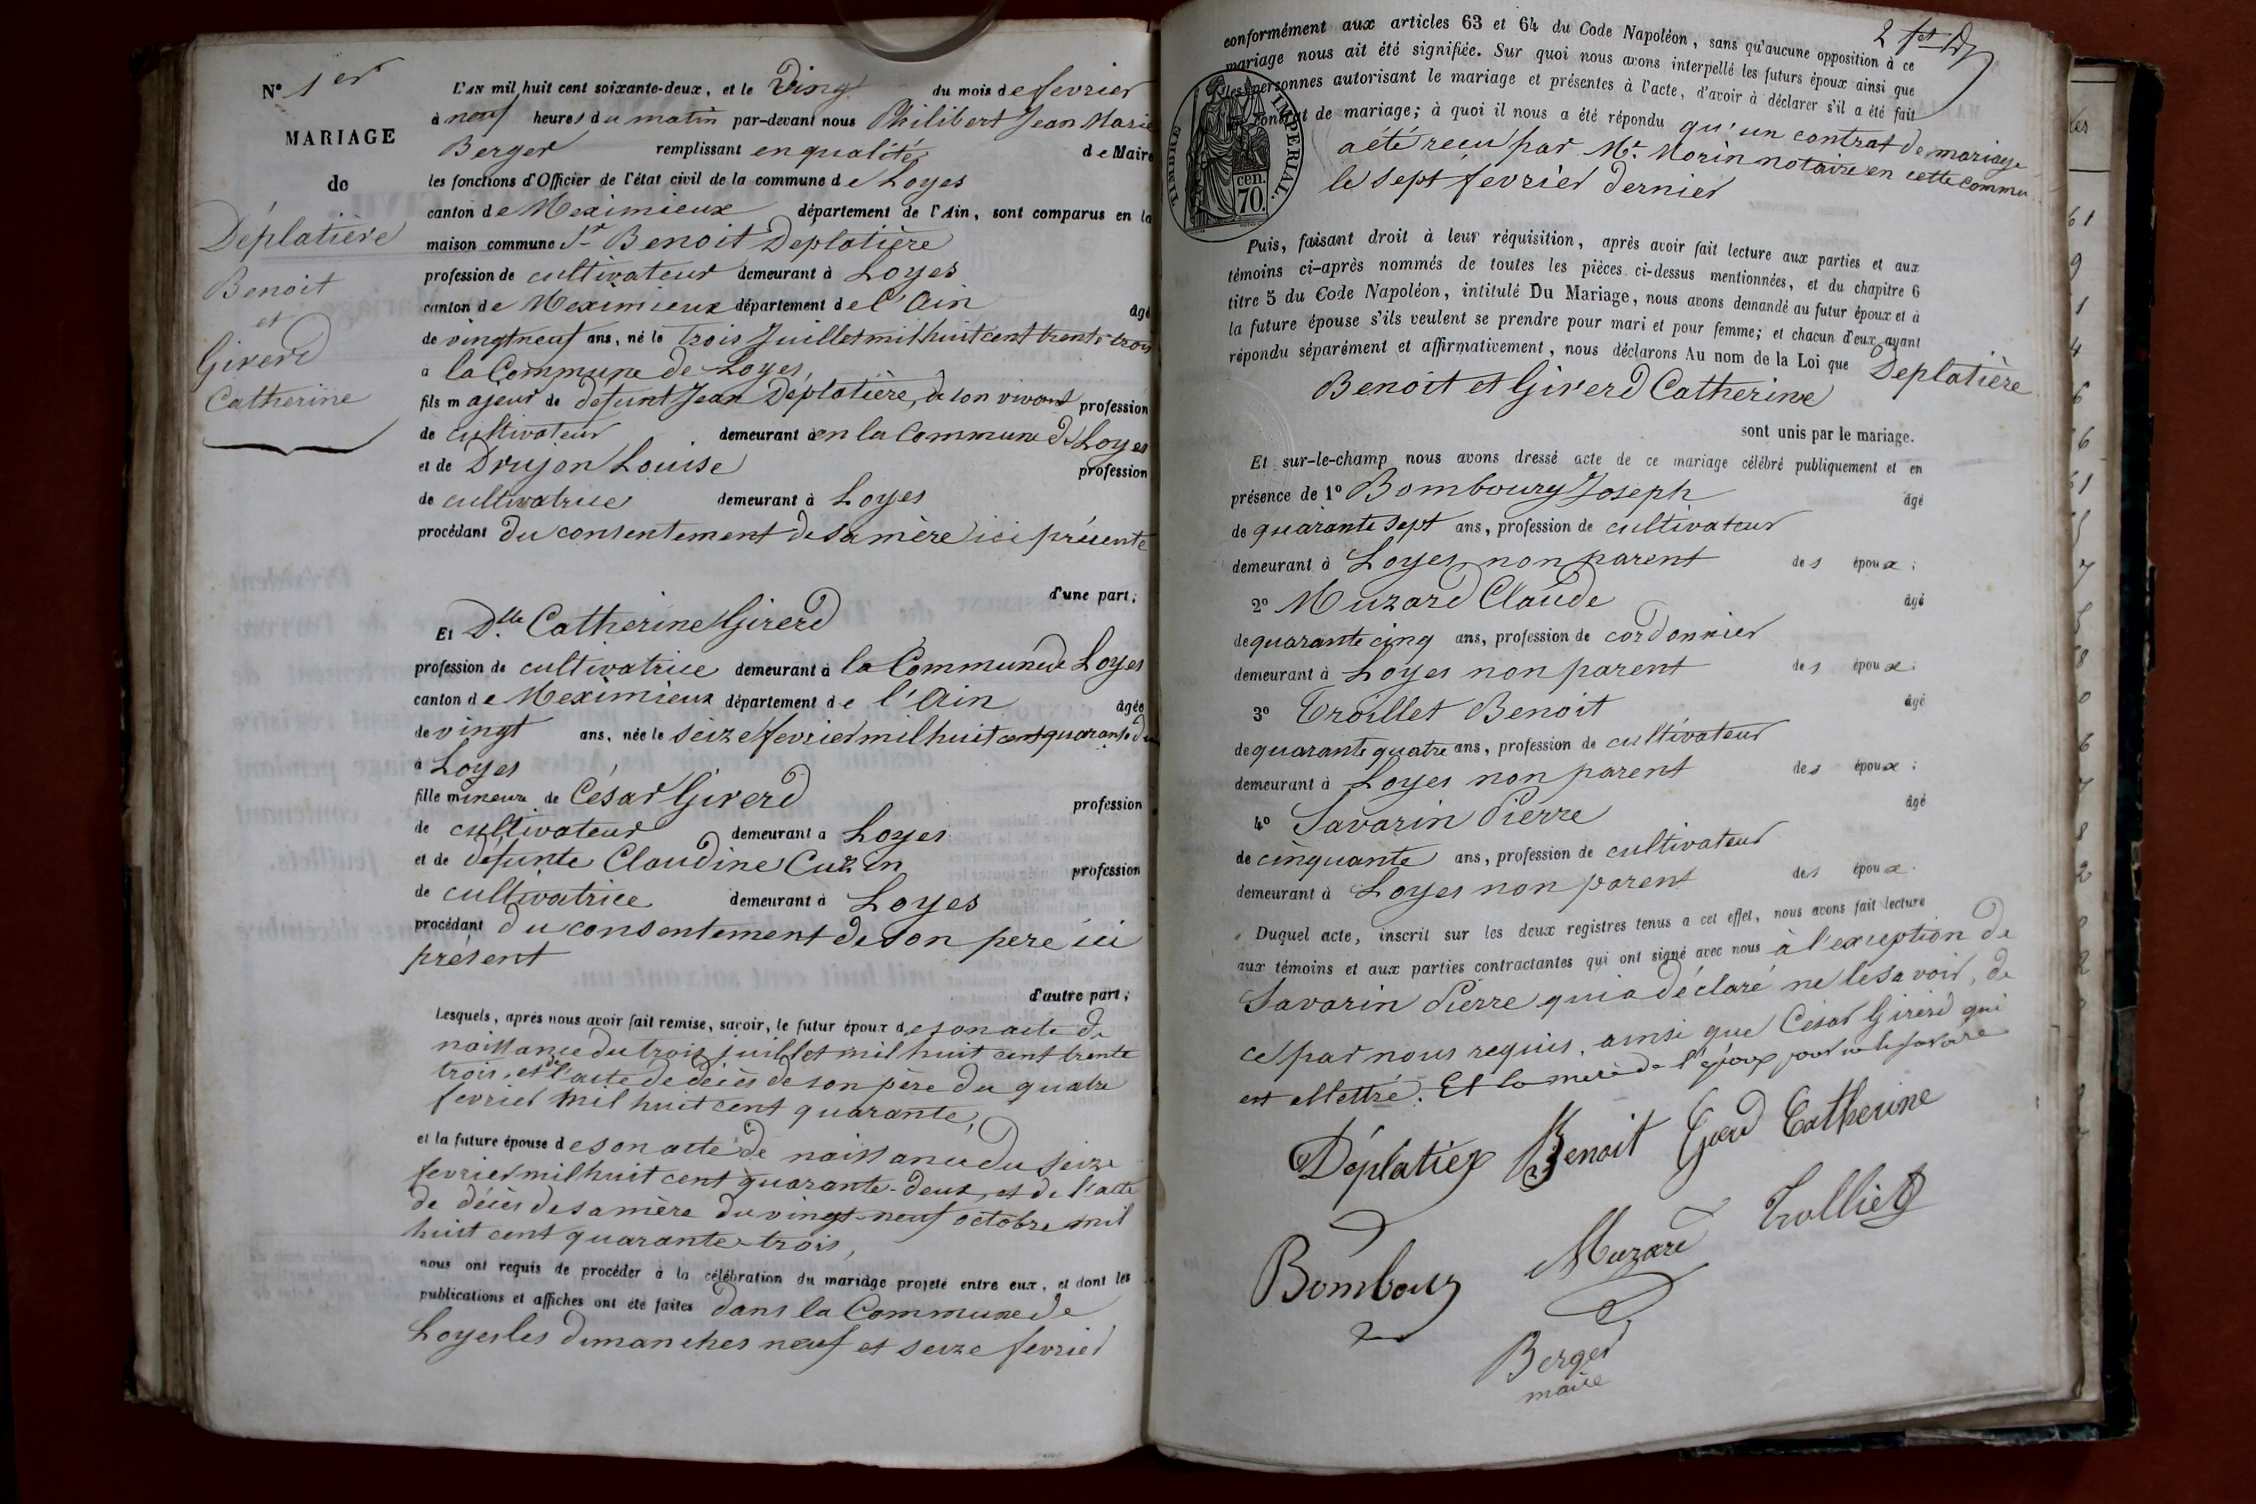 N° 1er
MARIAGE
de
Déplatière
Benoit
et
Girerd
Catherine
L'AN mil huit cent soixante-deux, et le Vingt du mois de fevrier
à neuf heures du matin par-devant nous Philibert Jean Marie
Berger remplissant en qualité de Maire
les fonctions d'Officier de l'état civil de la commune de Loyes
canton de Meximieux département de l'Ain, sont comparus en la
maison commune Sr Benoit Deplatière
profession de cultivateur demeurant à Loyes
canton de Meximieux département de l'Ain âgé
de vingt neuf ans, né le trois Juillet mil huit cent trente trois
à la Commune de Loyes,
fils majeur de defunt Jean Déplatière, de son vivant profession
de cultivateur demeurant à en la Commune de Loyes
et de Drujon Louise profession
de cultivatrice demeurant à Loyes
procédant du consentement de sa mère ici présente
d'une part;
Et Dlle Catherine Girerd
profession de cultivatrice demeurant à la Commune de Loyes
canton de Meximieux département de l'Ain âgée
de vingt ans, née le seize fevrier mil huit cent quarante d
à Loyes
fille mineure de César Girerd profession
de cultivateur demeurant à Loyes
et de défunte Claudine Cuzin profession
de cultivatrice demeurant à Loyes
procédant du consentement de son pere ici
présent
d'autre part;
Lesquels, après nous avoir fait remise, savoir, le futur époux de son acte de
naissance du trois juillet mil huit cent trente
trois, et de l'acte de décès de son père du quatre
fevrier mil huit cent quarante,
et la future épouse de son acte de naissance du seize
fevrier mil huit cent quarante-deux, et de l'acte
de décès de sa mère du vingt-neuf octobre mil
huit cent quarante-trois,
nous ont requis de procéder à la célébration du mariage projeté entre eux, et dont les
publications et affiches ont été faites dans la Commune de
Loyes les dimanches neuf et seize fevrier
2
conformément aux articles 63 et 64 du Code Napoléon, sans qu'aucune opposition à ce
mariage nous ait été signifiée. Sur quoi nous avons interpellé les futurs époux ainsi que
les personnes autorisant le mariage et présentes à l'acte, d'avoir à déclarer s'il a été fait
contrat de mariage; à quoi il nous a été répondu qu'un contrat de mariage
a été reçu par Me Morin notaire en cette commu
le sept fevrier dernier
TIMBRE IMPERIAL.
cen.
70.
Puis, faisant droit à leur réquisition, après avoir fait lecture aux parties et aux
témoins ci-après nommés de toutes les pièces ci-dessus mentionnées, et du chapitre 6
titre 5 du Code Napoléon, intitulé Du Mariage, nous avons demandé au futur époux et à
la future épouse s'ils veulent se prendre pour mari et pour femme; et chacun d'eux ayant
répondu séparément et affirmativement, nous déclarons Au nom de la Loi que Deplatière
Benoit et Girerd Catherine
sont unis par le mariage.
Et sur-le-champ nous avons dressé acte de ce mariage célébré publiquement et en
présence de 1° Bomboury Joseph âgé
de quarante sept ans, profession de cultivateur
demeurant à Loyes non parent des époux;
2° Muzard Claude âgé
de quarante cinq ans, profession de cordonnier
demeurant à Loyes non parent des époux;
3° Troillet Benoit âgé
de quarante quatre ans, profession de cultivateur
demeurant à Loyes non parent des époux;
4° Savarin Pierre âgé
de cinquante ans, profession de cultivateur
demeurant à Loyes non parent des époux.
Duquel acte, inscrit sur les deux registres tenus à cet effet, nous avons fait lecture
aux témoins et aux parties contractantes qui ont signé avec nous à l'exception de
Savarin Pierre qui a déclaré ne le savoir, de
ce par nous requis, ainsi que César Girerd qui
est illettré. Et la mere de l'époux pour ne le savoire
Déplatière Benoit Girerd Catherine
Bomboury Muzard Trolliet
Berger
maire